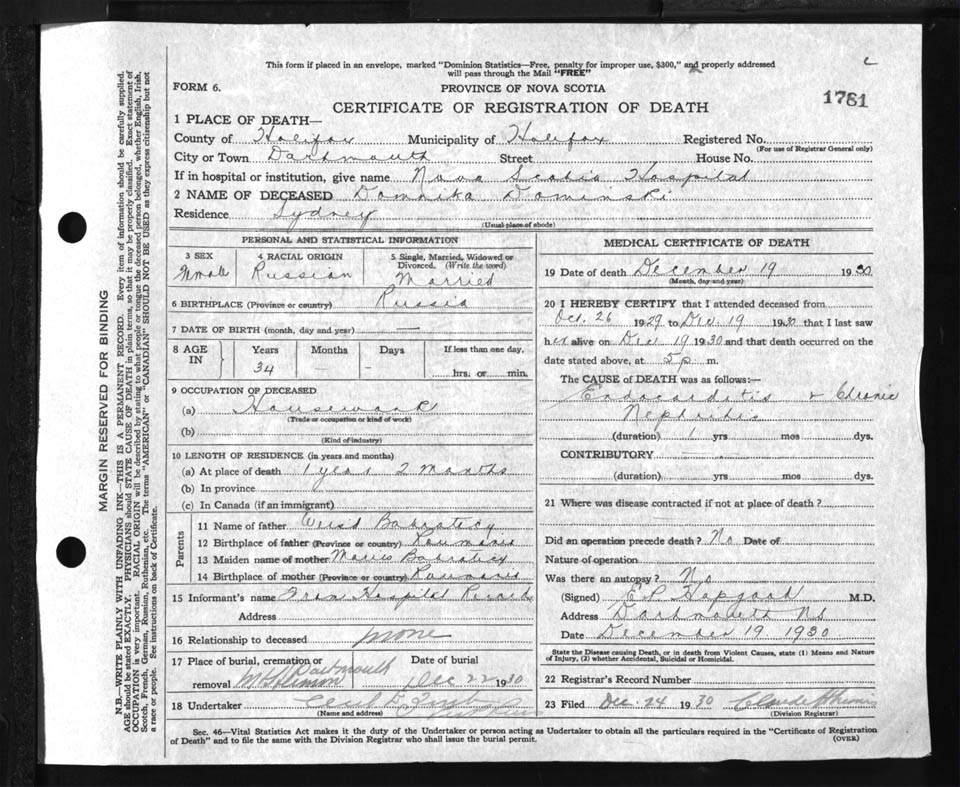 This form if placed in an envelope, marked "Dominion Statistics—Free, penalty for improper use, $300," and properly addressed
will pass through the Mail "FREE"
FORM 6.
PROVINCE OF NOVA SCOTIA
1761
CERTIFICATE OF REGISTRATION OF DEATH
1 PLACE OF DEATH—
County of Halifax Municipality of Halifax Registered No.
(For use of Registrar General only)
City or Town Dartmouth Street House No.
If in hospital or institution, give name Nova Scotia Hospital
2 NAME OF DECEASED Domnika Dominski
Residence Sydney
(Usual place of abode)
PERSONAL AND STATISTICAL INFORMATION
3 SEX 4 RACIAL ORIGIN 5 Single, Married, Widowed or
Divorced. (Write the word)
Female Russian Married
6 BIRTHPLACE (Province or country) Russia
7 DATE OF BIRTH (month, day and year) —
8 AGE IN Years Months Days If less than one day,
34 — — hrs. or min.
9 OCCUPATION OF DECEASED
(a) Housework
(Trade or occupation or kind of work)
(b)
(Kind of industry)
10 LENGTH OF RESIDENCE (in years and months)
(a) At place of death 1 year 2 Months
(b) In province
(c) In Canada (if an immigrant)
Parents
11 Name of father
12 Birthplace of father (Province or country) Roumania
13 Maiden name of mother
14 Birthplace of mother (Province or country) Roumania
15 Informant's name From Hospital Records
Address
16 Relationship to deceased none
17 Place of burial, cremation or Date of burial
removal Dartmouth Dec 22 1930
18 Undertaker
(Name and address)
MEDICAL CERTIFICATE OF DEATH
19 Date of death December 19 1930
(Month, day and year)
20 I HEREBY CERTIFY that I attended deceased from
Oct. 26 1929 to Dec. 19 1930 that I last saw
her alive on Dec 19 1930 and that death occurred on the
date stated above, at 5 p m.
The CAUSE of DEATH was as follows:—
Endocarditis & Chronic
Nephritis
(duration) 1 yrs mos dys.
CONTRIBUTORY
(duration) yrs mos dys.
21 Where was disease contracted if not at place of death?
Did an operation precede death? No Date of
Nature of operation
Was there an autopsy? No
(Signed) E P Hapgood M.D.
Address Dartmouth NS
Date December 19 1930
State the Disease causing Death, or in death from Violent Causes, state (1) Means and Nature
of Injury, (2) whether Accidental, Suicidal or Homicidal.
22 Registrar's Record Number
23 Filed Dec. 24 1930
(Division Registrar)
Sec. 46—Vital Statistics Act makes it the duty of the Undertaker or person acting as Undertaker to obtain all the particulars required in the "Certificate of Registration
of Death" and to file the same with the Division Registrar who shall issue the burial permit.
(OVER)
MARGIN RESERVED FOR BINDING
N.B.—WRITE PLAINLY WITH UNFADING INK—THIS IS A PERMANENT RECORD. Every item of information should be carefully supplied.
AGE should be stated EXACTLY. PHYSICIANS should STATE CAUSE OF DEATH in plain terms, so that it may be properly classified. Exact statement of
OCCUPATION is very important. RACIAL ORIGIN will be described by stating to what people or tongue the deceased person belonged, whether English, Irish,
Scotch, French, German, Russian, Ruthenian, etc. The terms "AMERICAN" or "CANADIAN" SHOULD NOT BE USED as they express citizenship but not
a race or people. See instructions on back of Certificate.